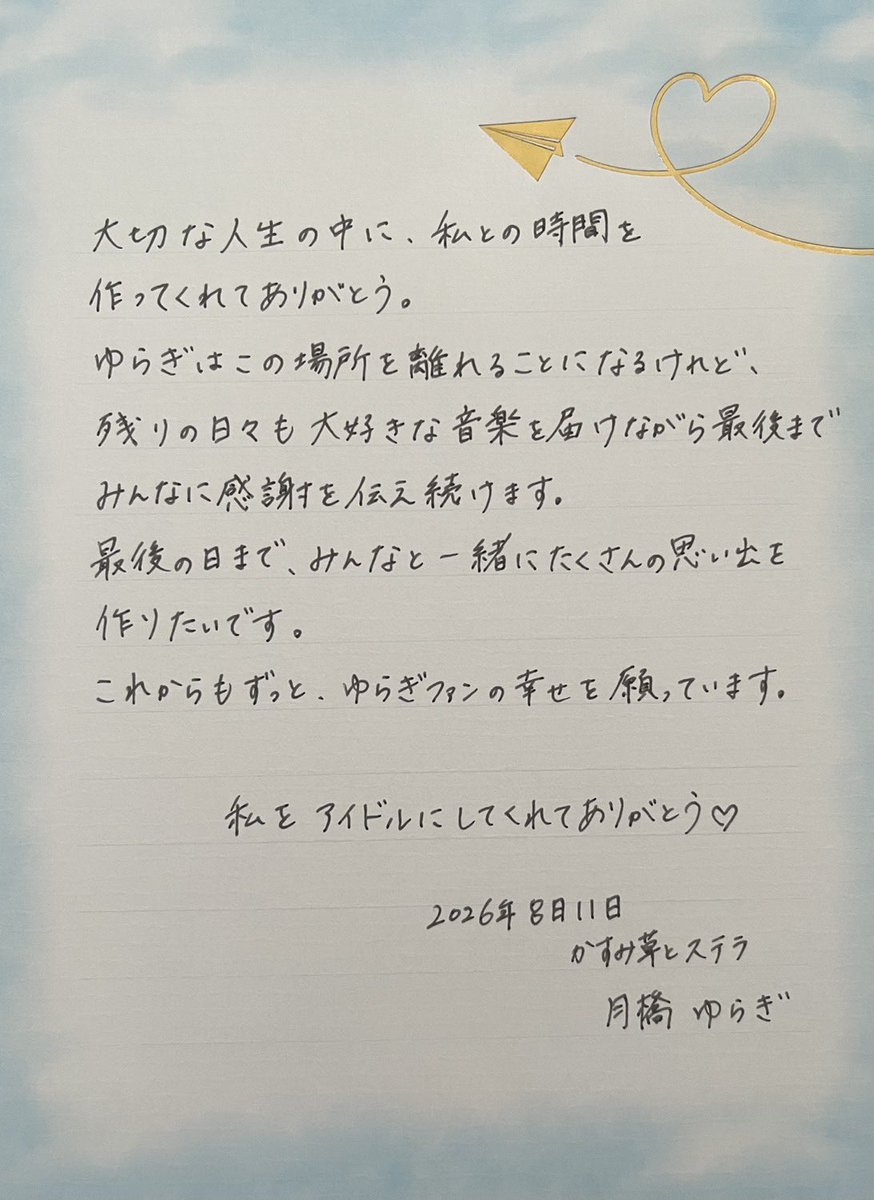 大切な人生の中に、私との時間を
作ってくれてありがとう。
ゆらぎはこの場所を離れることになるけれど、
残りの日々も大好きな音楽を届けながら最後まで
みんなに感謝を伝え続けます。
最後の日まで、みんなと一緒にたくさんの思い出を
作りたいです。
これからもずっと、ゆらぎファンの幸せを願っています。
私をアイドルにしてくれてありがとう♡
2026年8日11日
かすみ草とステラ
月橋 ゆらぎ